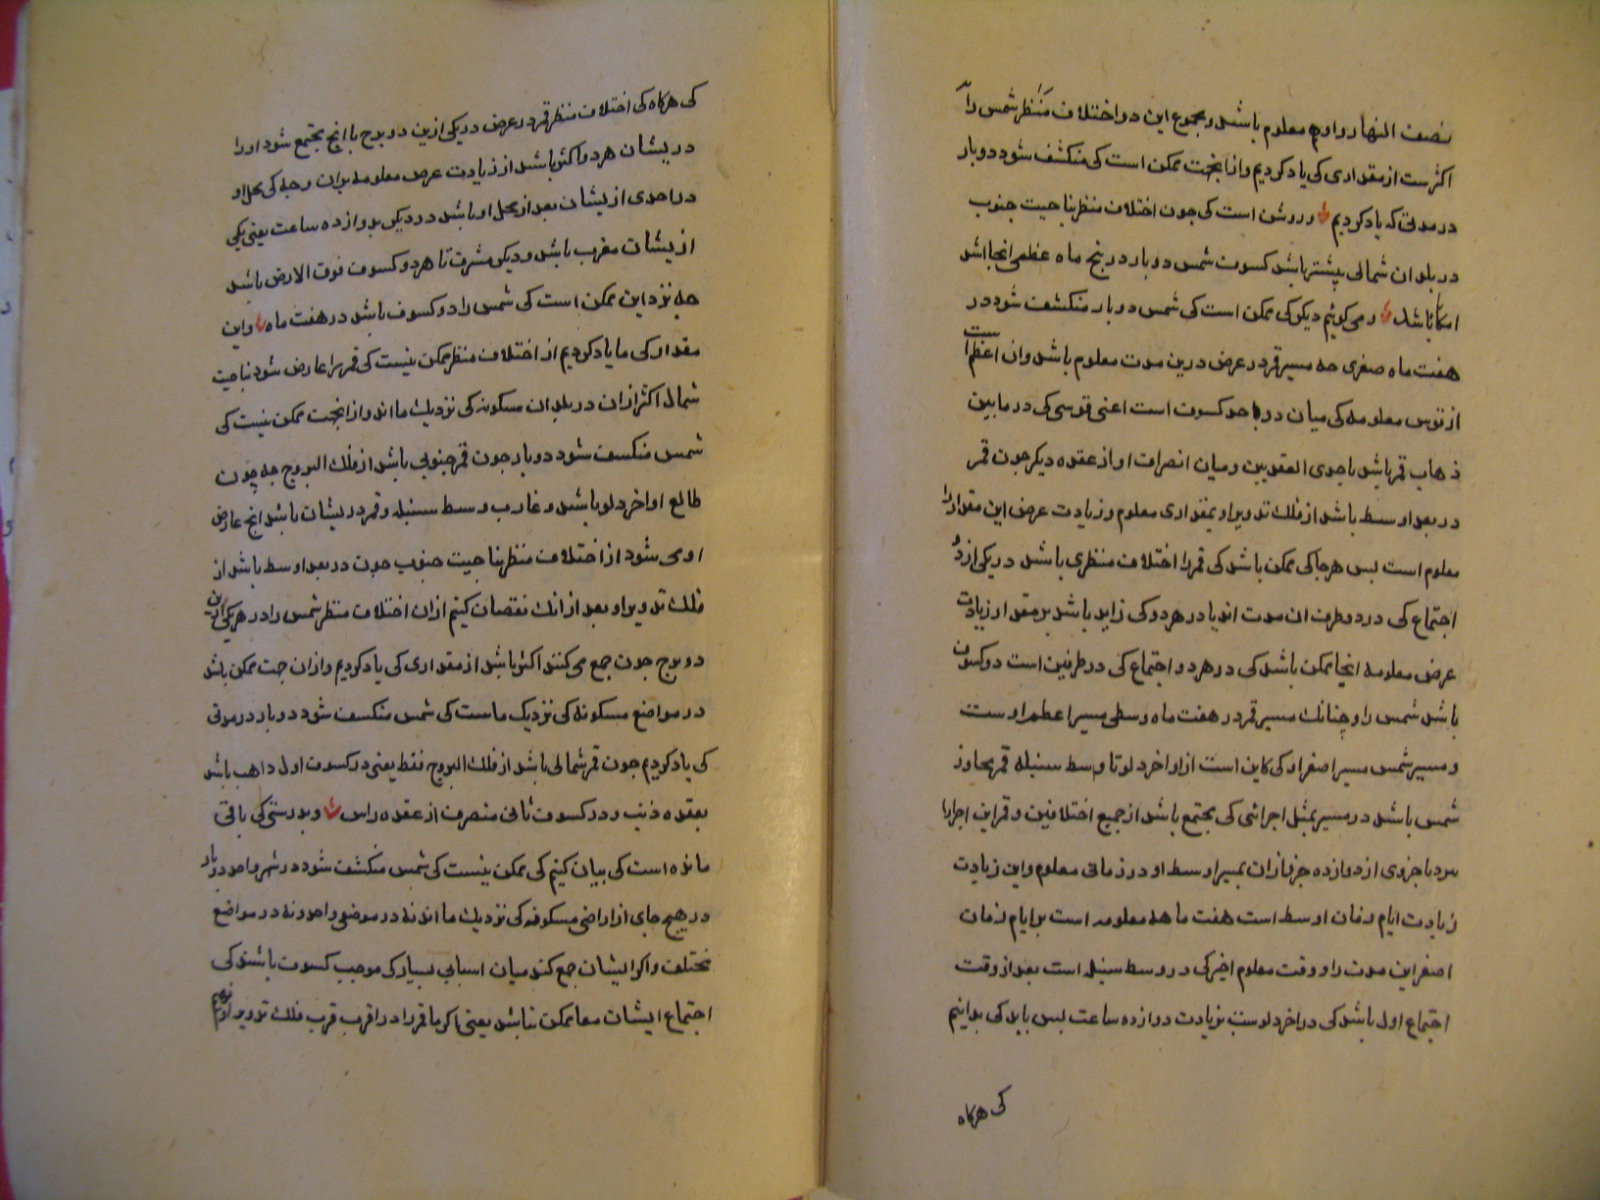 نصف النهار و اوج معلوم باشد و مجموع این دو اختلاف منظر شمس را
اکثرست از مقداری کی یاد کردیم و از انجهت ممکن است کی منکشف شود دو بار
در مدتی که یاد کردیم و روشن است کی چون اختلاف منظر بناحیت جنوب
در بلدان شمالی بیشتر باشد کسوف شمس دو بار در پنج ماه عظمی انجا اشد
امکانا باشد و می کوئیم دیکر کی ممکن است کی شمس دو بار منکشف شود در
هفت ماه صغری چه مسیر قمر در عرض درین مدت معلوم باشد وان اعظم است
از قوس معلومه کی میان دو کسوف است اعنی قوسی کی در ما بین
ذهاب قمر باشد باحدی العقدتین و میان انصراف او از عقده دیکر چون قمر
در بعد اوسط باشد از فلک تدویر او بمقداری معلوم و زیادت عرض این مقدار را
معلوم است بس هر جا کی ممکن باشد کی قمر را اختلاف منظری باشد در یکی از دو
اجتماع کی در دو طرف ان مدت اند یا در هر دو کی زاید باشد بر مقدار زیادت
عرض معلومه انجا ممکن باشد کی در هر دو اجتماع کی در طرفین است دو کسوف
باشد شمس را و چنانک مسیر قمر در هفت ماه وسطی مسیر اعظم اوست
و مسیر شمس مسیر اصغر او کی کاین است از اواخر دلو تا وسط سنبله قمر مجاوز
شمس باشد در مسیر بمثل اجزائی کی مجتمع باشد از جمیع اختلافین و قمر این اجزا را
با جزوی از دوازده جزو ازان بمسیر اوسط او در زمانی معلوم و این زیادت
زیادت ایام زمان اوسط است هفت ماهه معلومه است بر ایام زمان
اصغر این مدت را و وقت معلوم اخیر کی در وسط سنبله است بعد از وقت
اجتماع اول باشد کی در اخر دلوست بزیادت دوازده ساعت بس باید کی بدانیم
کی هرکاه
کی هرکاه کی اختلاف منظر قمر در عرض در یکی ازین دو برج با انچ مجتمع شود او را
دریشان هر دو اکثر باشد از زیادت عرض معلومه بران وجه کی محل او
در احدی ازیشان بعد از محل او باشد در دیکر بدوازده ساعت یعنی یکی
ازیشان مغرب باشد و دیکر مشرق تا هر دو کسوف فوق الارض باشد
چه نزد این ممکن است کی شمس را دو کسوف باشد در هفت ماه و این
مقدار کی ما یاد کردیم از اختلاف منظر ممکن نیست کی قمر را عارض شود بناحیت
شمال اکثر ازان در بلدان مسکونه کی نزدیک ما اند و از انجهت ممکن نیست کی
شمس منکسف شود دو بار چون قمر جنوبی باشد از فلک البروج چه چون
طالع اواخر دلو باشد و غارب وسط سنبله و قمر دریشان باشد انچ عارض
او می شود از اختلاف منظر بناحیت جنوب چون در بعد اوسط باشد از
فلک تدویر او بعد از انک نقصان کنیم ازان اختلاف منظر شمس را در هر یکی ازین
دو برج چون جمع می کنند اکثر باشد از مقداری کی یاد کردیم و ازان جهت ممکن باشد
در مواضع مسکونه کی نزدیک ماست کی شمس منکسف شود دو بار در مدتی
کی یاد کردیم چون قمر شمالی باشد از فلک البروج فقط یعنی در کسوف اول ذاهب باشد
بعقده ذنب و در کسوف ثانی منصرف از عقده راس و بدرستی کی باقی
مانده است کی بیان کنیم کی ممکن نیست کی شمس منکشف شود در شهر واحد دو بار
در هیچ جای از اراضی مسکونه کی نزدیک ما اند نه در موضعی واحد و نه در مواضع
مختلف و اکر ایشان جمع کنند میان اسبابی بسیار کی موجب کسوف باشند کی
اجتماع ایشان معا ممکن نباشد یعنی اکر ما قمر را در اقرب قرب فلک تدویر او نهیم